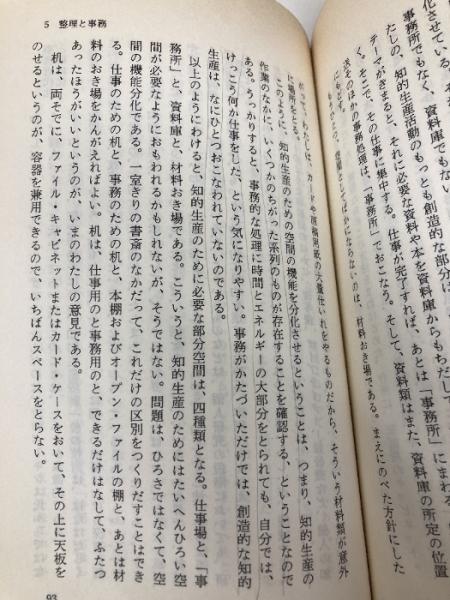 5 整理と事務
化させている。
事務所でもなく、資料庫でもな
たしの、知的生産活動のもっとも創造的な部分は、
テーマがきまると、それに必要な資料や本を資料庫からもちだして
く。そこで、その仕事に集中する。仕事が完了すれば、あとは「事務所」にまわ
送そのほかの事務処理は、「事務所」でおこなう。そして、資料類はまた、資料庫の所定の位置
にもどす。
ならないのは、材料おき場である。まえにのべた方針にした
がって、わたしは、カードや原稿用紙の大量仕いれをやるものだから、そういう材料類が意外
に場所をとる。
このように、知的生産のための空間の機能を分化させるということは、つまり、知的生産の
作業のなかに、いくつかのちがった系列のものが存在することを確認する、ということなので
ある。うっかりすると、事務的な処理に時間とエネルギーの大部分をとられても、自分では、
けっこう何か仕事をした、という気になりやすい。事務がかたづいただけでは、創造的な知的
生産は、なにひとつおこなわれていないのである。
以上のようにわけると、知的生産のために必要な部分空間は、四種類となる。仕事場と、「事
務所」と、資料庫と、材料おき場である。こういうと、知的生産のためにはたいへんひろい空
間が必要なようにおもわれるかもしれないが、そうではない。問題は、ひろさではなくて、空
間の機能分化である。一室きりの書斎のなかだって、これだけの区別をつくりだすことはでき
る。仕事のための机と、事務のための机と、本棚およびオープン・ファイルの棚と、あとは材
料のおき場をかんがえればよい。机は、仕事用のと事務用のと、できるだけはなして、ふたつ
あったほうがいいというのが、いまのわたしの意見である。
机は、両そでに、ファイル・キャビネットまたはカード・ケースをおいて、その上に天板を
のせるというのが、容器を兼用できるので、いちばんスペースをとらない。
93